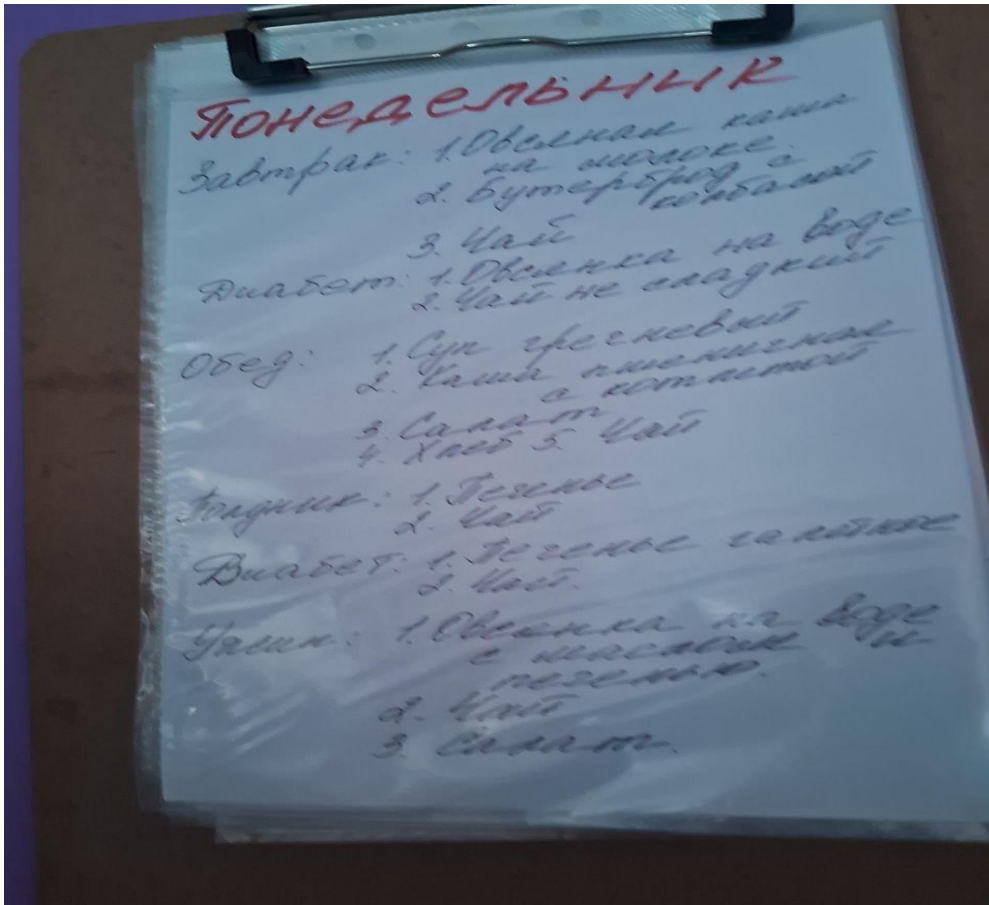 Понедельник
Завтрак: 1. Овсяная каша
на молоке.
2. Бутерброд с
колбасой
3. Чай
Диабет: 1. Овсянка на воде
2. Чай не сладкий
Обед: 1. Суп гречневый
2. Каша пшеничная
с котлетой
3. Салат
4. Хлеб 5. Чай
Полдник: 1. Печенье
2. Чай
Диабет: 1. Печенье галетное
2. Чай.
Ужин: 1. Овсянка на воде
с маслом и
печенью.
2. Чай
3. Салат.